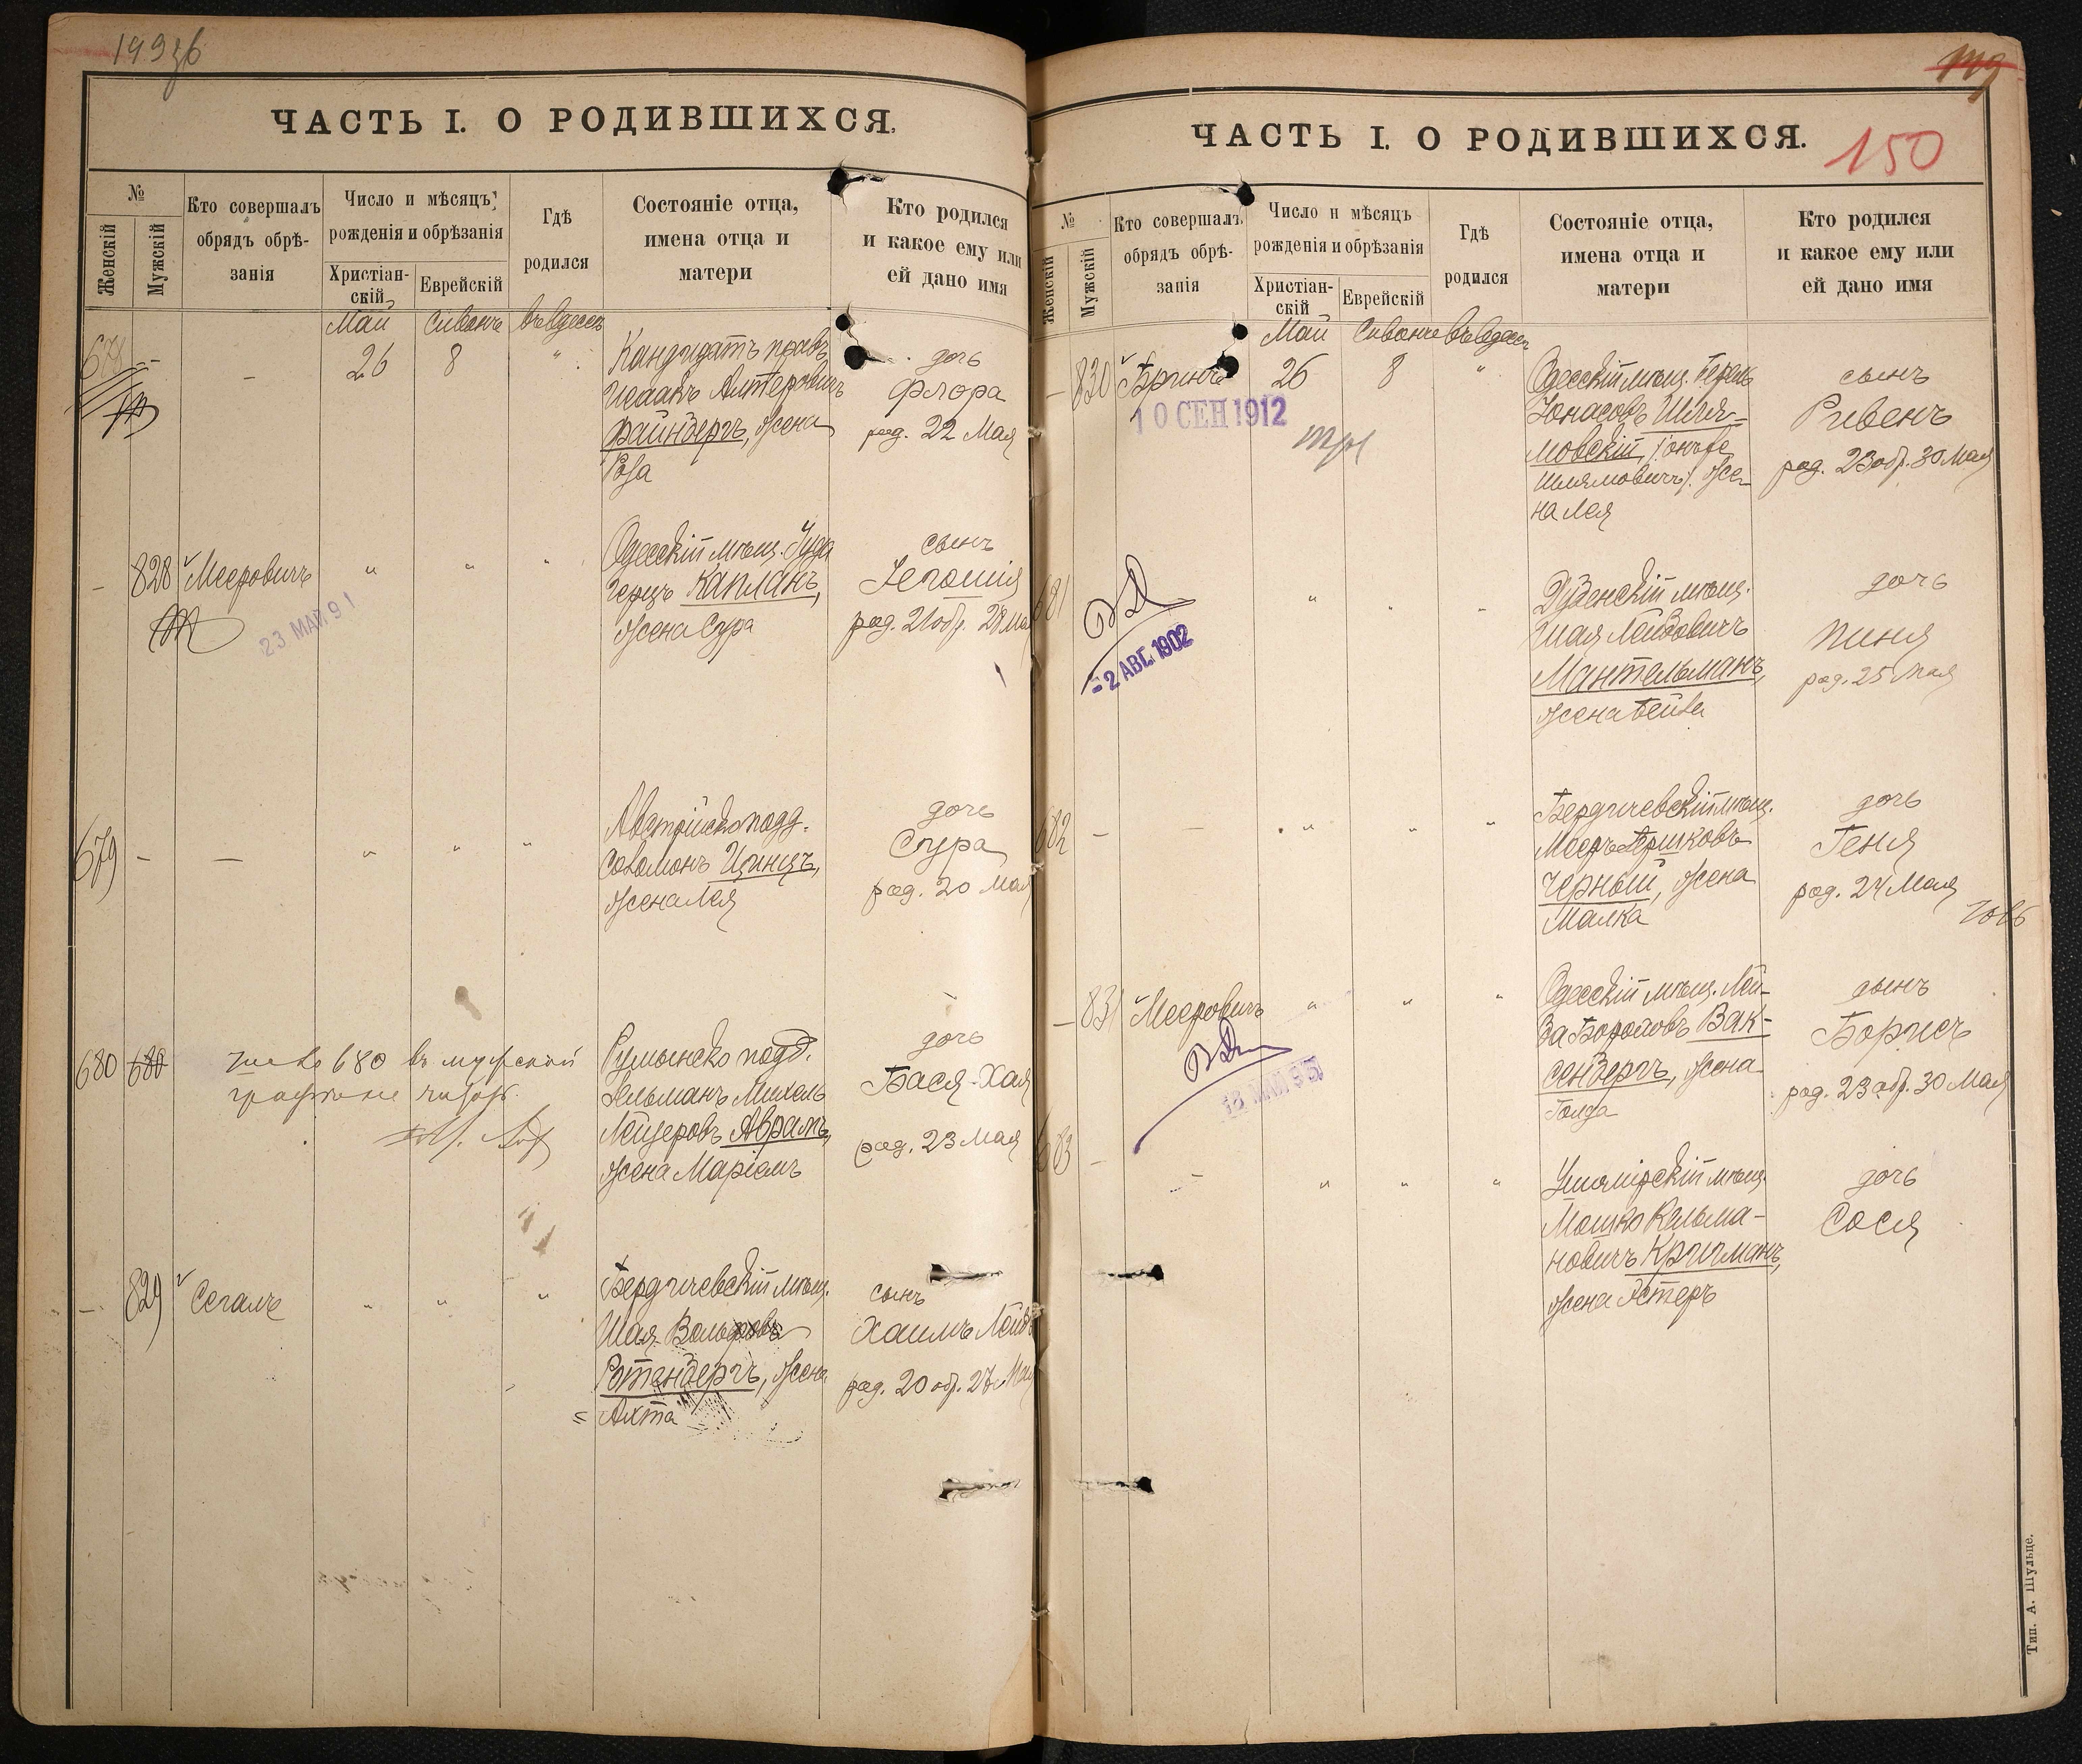 ЧАСТЬ I. О РОДИВШИХСЯ.
№
Женскій
Мужскій
Кто совершалъ
обрядъ обрѣ-
занія
Число и мѣсяцъ
рожденія и обрѣзанія
Христіан-
скій
Еврейскій
Гдѣ
родился
Состояніе отца,
имена отца и
матери
Кто родился
и какое ему или
ей дано имя
Май Сивонъ въ Одессѣ
678 - - 26 8 "
Кандидатъ правъ
Исаакъ Алтеровичъ
Файнбергъ, жена
Роза
дочь
Флора
род. 22 Мая
- 828 Мееровичъ " " "
23 МАЙ 91
Одесскій мѣщ. Іуда
Герцъ Капланъ,
жена Сура
сынъ
Іегошія
род. 21 обр. 28 Мая
679 - - " " "
Австрійско подд.
Соломонъ Цинцъ,
жена Лея
дочь
Сура
род. 20 Мая
680 680
число 680 въ мужской
графѣ не
Румынско подд.
Гельманъ Михель
Лейзеровъ Аврамъ,
жена Маріамъ
дочь
Бася-Хая
род. 23 Мая
- 829 Сегалъ " " "
Бердичевскій мѣщ.
Шая-Вольфовъ
Ротенбергъ, жена
Ахта
сынъ
Хаимъ Лейб
род. 20 обр. 27 Мая
ЧАСТЬ I. О РОДИВШИХСЯ.
150
№
Женскій
Мужскій
Кто совершалъ
обрядъ обрѣ-
занія
Число и мѣсяцъ
рожденія и обрѣзанія
Христіан-
скій
Еврейскій
Гдѣ
родился
Состояніе отца,
имена отца и
матери
Кто родился
и какое ему или
ей дано имя
Май Сивонъ въ Одессѣ
- 830 Бринъ 26 8 "
10 СЕН 1912
Одесскій мѣщ. Берль
Іонасовъ Шля-
мовскій, (онъ же
Шлямовичъ). Же-
на Лея
сынъ
Рувенъ
род. 23 обр. 30 Мая
681 " " "
- 2 АВГ. 1902
Дубенскій мѣщ.
Шая Лейбовичъ
Мантельманъ,
жена Бейла
дочь
Пиня
род. 25 Мая
682 - - " " "
Бердичевскій мѣщ.
Мееръ Бершковъ
Черный, жена
Малка
дочь
Геня
род. 24 Мая
- 831 Мееровичъ " " "
18 МАЙ 95
Одесскій мѣщ. Лей-
ба Бороховъ Вак-
сенбергъ, жена
Голда
сынъ
Борисъ
род. 23 обр. 30 Мая
683 - - " " "
Ушомірскій мѣщ.
Мошко Кельма-
новичъ Кричманъ,
жена Эстеръ
дочь
Сося
Тип. А. Шульце.